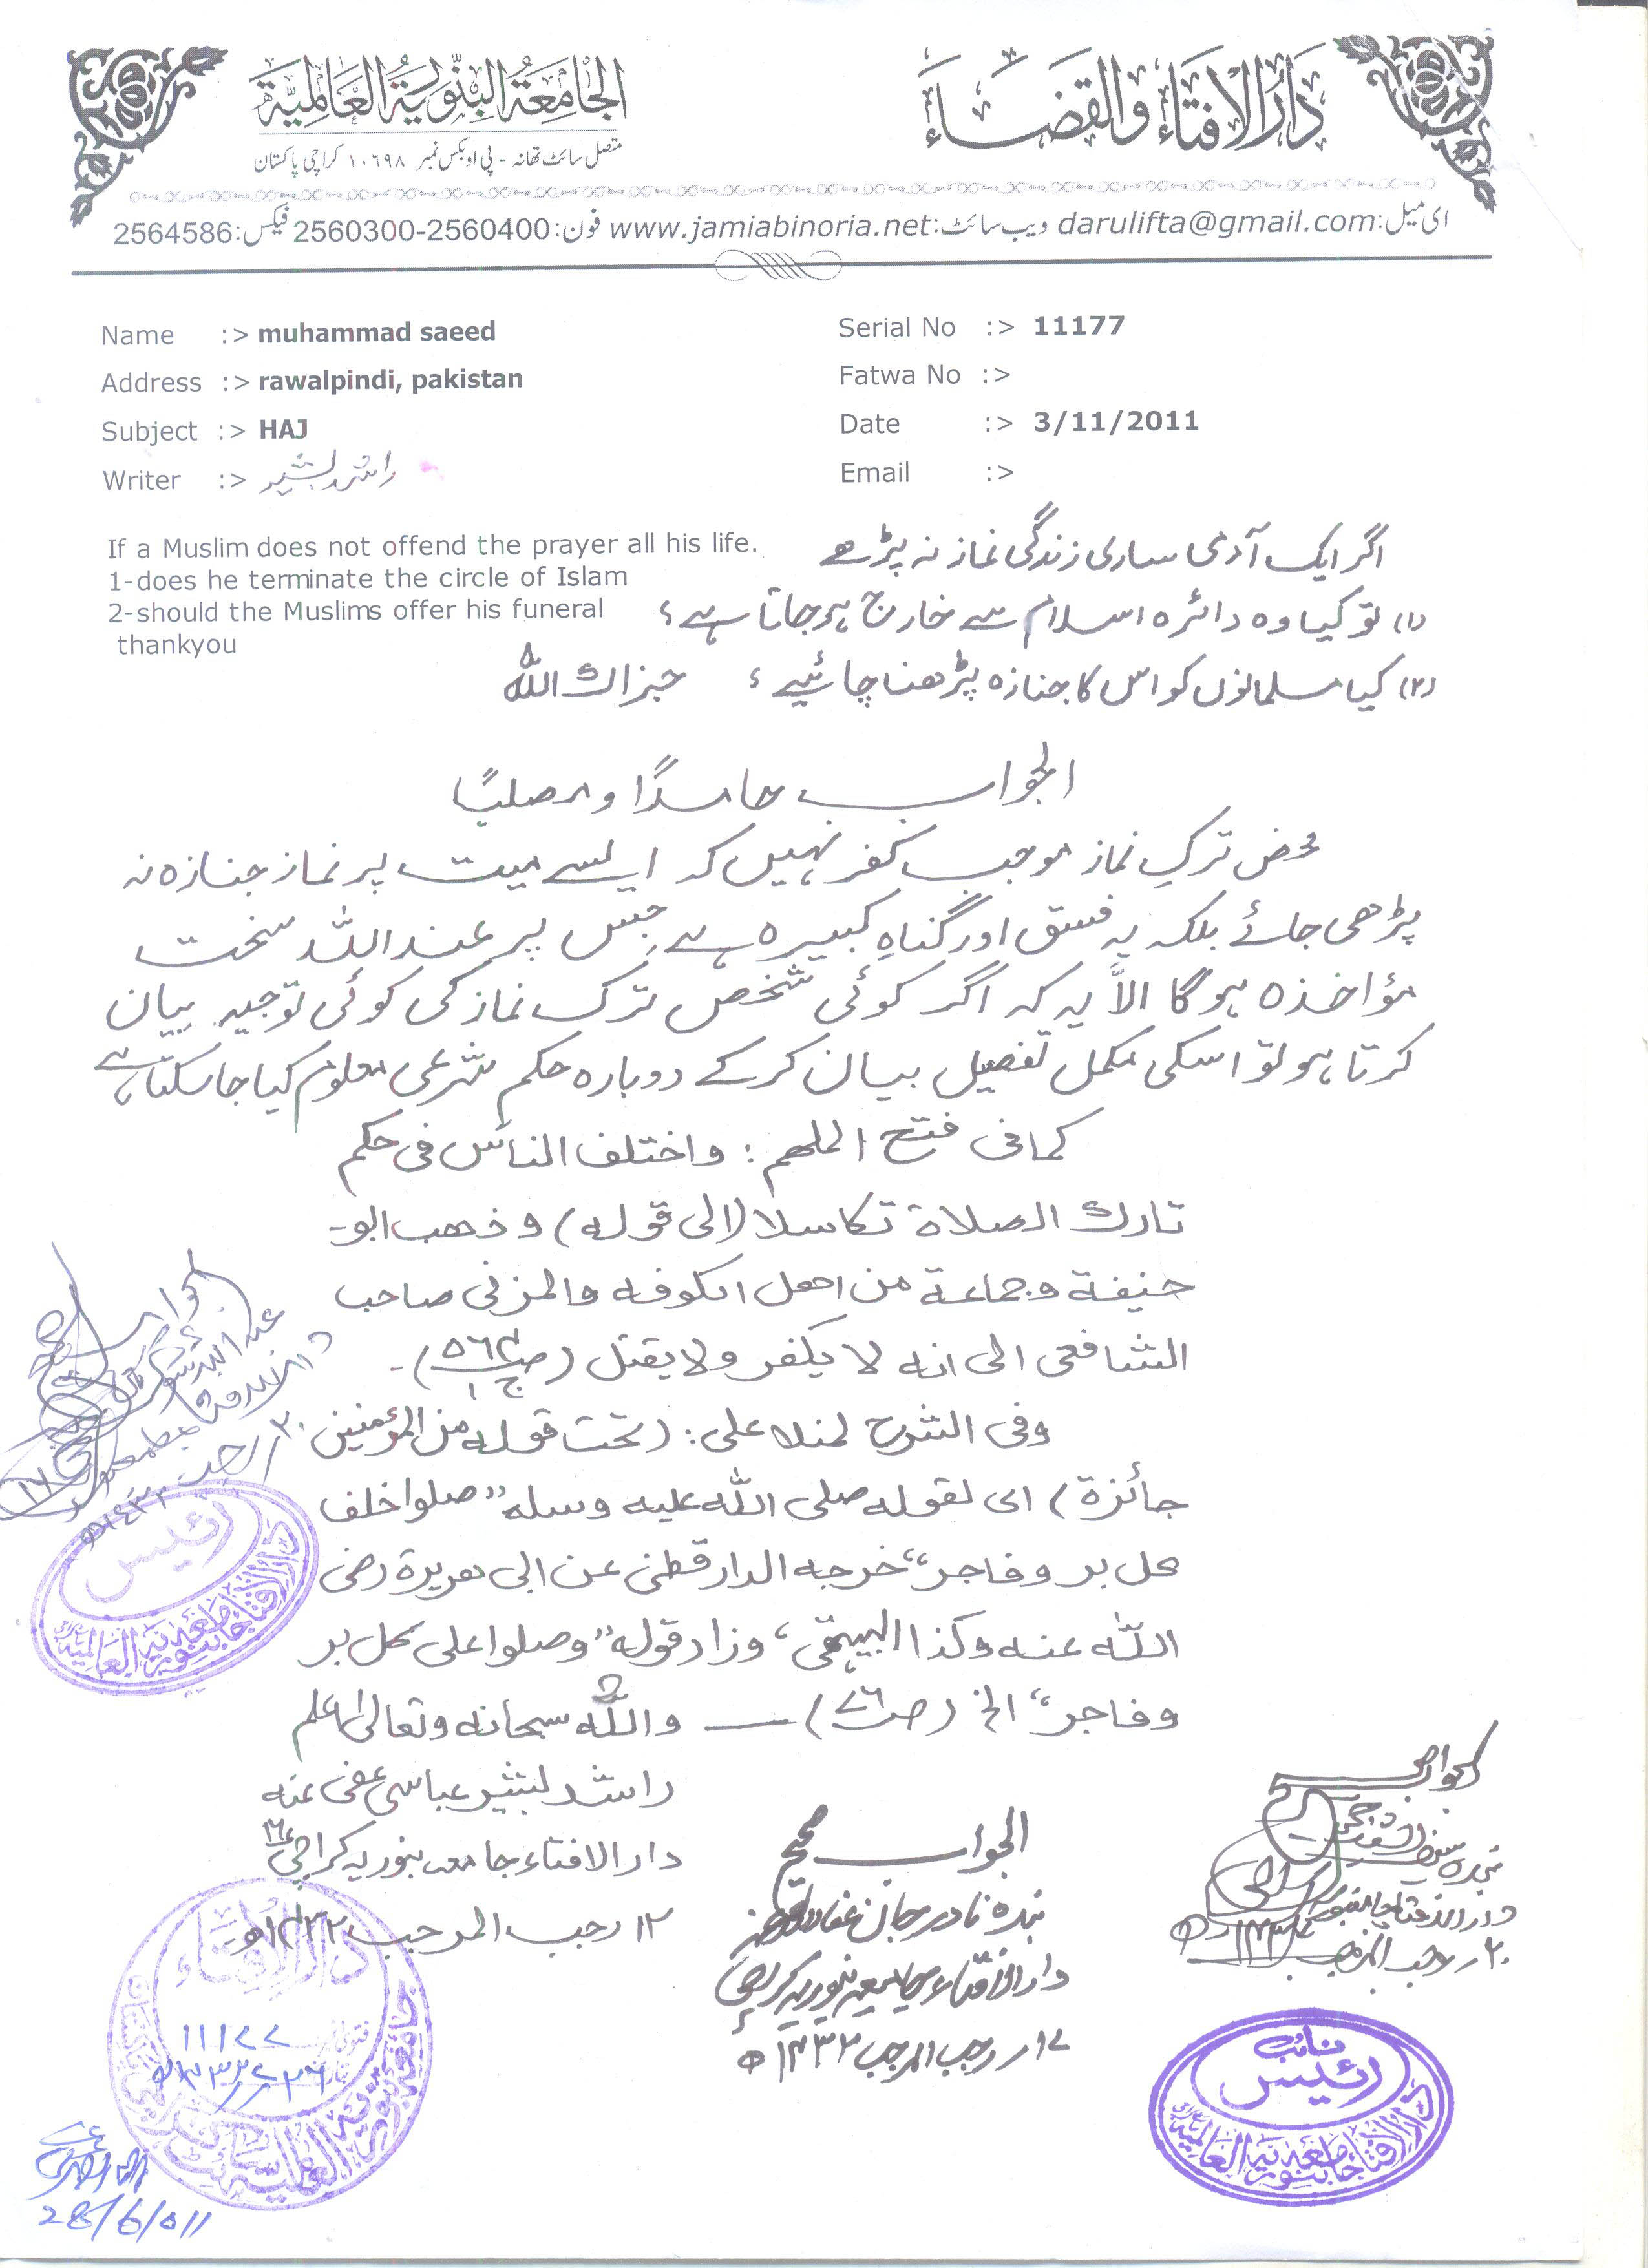 دَارُ الإفتَاء وَالقَضَاء
الجَامِعَةُ البِنُّورِيَةُ العَالَمِيَّة
متصل سائٹ تھانہ - پی او بکس نمبر ۱۰۶۹۸ کراچی پاکستان
ای میل: darulifta@gmail.com ویب سائٹ: www.jamiabinoria.net فون: 2560300-2560400 فیکس: 2564586
Name :> muhammad saeed
Serial No :> 11177
Address :> rawalpindi, pakistan
Fatwa No :>
Subject :> HAJ
Date :> 3/11/2011
Writer :> راشد بشیر
Email :>
If a Muslim does not offend the prayer all his life.
1-does he terminate the circle of Islam
2-should the Muslims offer his funeral
thankyou
اگر ایک آدمی ساری زندگی نماز نہ پڑھے
(۱) تو کیا وہ دائرہ اسلام سے خارج ہو جاتا ہے؟
(۲) کیا مسلمانوں کو اس کا جنازہ پڑھنا چاہئیے؟ جزاک اللہ
الجواب حامدًا ومصلیًا
محض ترکِ نماز موجب کفر نہیں کہ ایسے میت پر نماز جنازہ نہ
پڑھی جائے بلکہ یہ فسق اور گناہِ کبیرہ ہے، جس پر عند اللہ سخت
مؤاخذہ ہوگا الاَّ یہ کہ اگر کوئی شخص ترک نماز کی کوئی توجیہ بیان
کرتا ہو تو اسکی مکمل تفصیل بیان کرکے دوبارہ حکم شرعی معلوم کیا جاسکتا ہے
کما فی فتح الملھم: واختلف الناس فی حکم
تارک الصلاة تکاسلا (الی قوله) و ذهب ابو-
حنیفة وجماعة من اهل الکوفه والمزنی صاحب
الشافعی الی انه لا یکفر ولا یقتل (ص ج ۱)-
وفی الشرح لملا علی: (تحت قوله من المؤمنین
جائزة) ای لقوله صلی اللّٰه علیه وسلم "صلوا خلف
کل بر و فاجر" خرجه الدار قطنی عن ابی هریرة رضی
اللّٰه عنه وکذا البیهقی، وزاد قوله "وصلوا علی کل بر
وفاجر" الخ (ص ۷۶) — واللّٰه سبحانه وتعالی اعلم
راشد بشیر عباسی عفی عنہ
دار الافتاء جامعہ بنوریہ کراچی
۱۲ رجب المرجب ۱۴۳۲ھ
الجواب صحیح
بندہ نادر جان
دار الافتاء جامعہ بنوریہ کراچی
۱۷ رجب المرجب ۱۴۳۲ھ
الجواب صحیح
۲۰ رجب المرجب
نائب رئیس
دار الافتاء جامعہ بنوریہ العالمیہ
رئیس
دار الافتاء جامعہ بنوریہ العالمیہ
دار الافتاء
۱۱۱۷۷
28/6/011